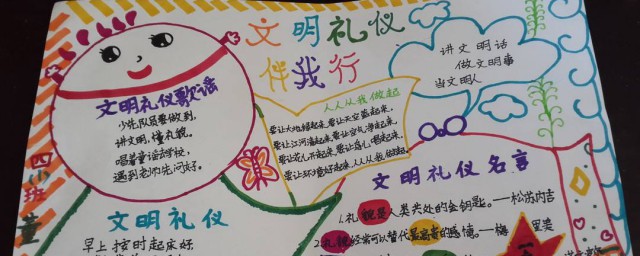 文明礼仪
伴我行
讲文明话
做文明事
当文明人
文明礼仪歌谣
少先队员要做到,
讲文明,懂礼貌。
唱着童谣去学校,
遇到老师先问好。
人人从我做起
要让大地绿起来,要让天空蓝起来,
要让江河清起来,要让空气净起来,
要让花儿开起来,要让鸟儿唱起来,
要让环境好起来,人人从我做起。
四
班
董
文明礼仪
早上按时起床好
文明礼仪名言
1.礼貌是人类共处的金钥匙。——松苏内吉
2.礼貌经常可以替代最高贵的感情。——梅里美